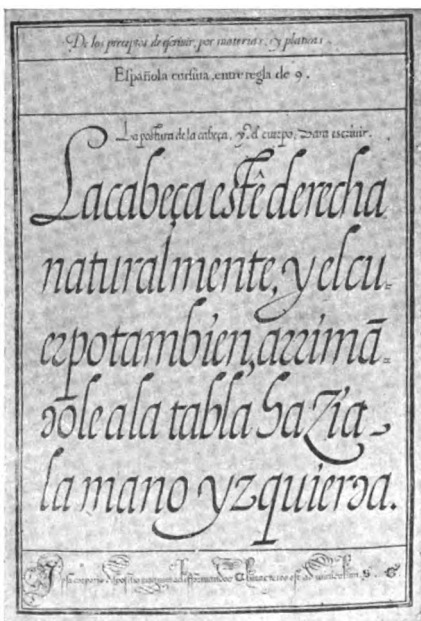 De los preceptos de escriuir, por materias, y platicas.
Española cursiua, entre regla de 9.
La postura de la cabeça, y del cuerpo, para escriuir.
La cabeça estê derecha
naturalmente, y el cu-
erpo tambien, arrimā=
dole a la tabla hazia
la mano yzquierda.